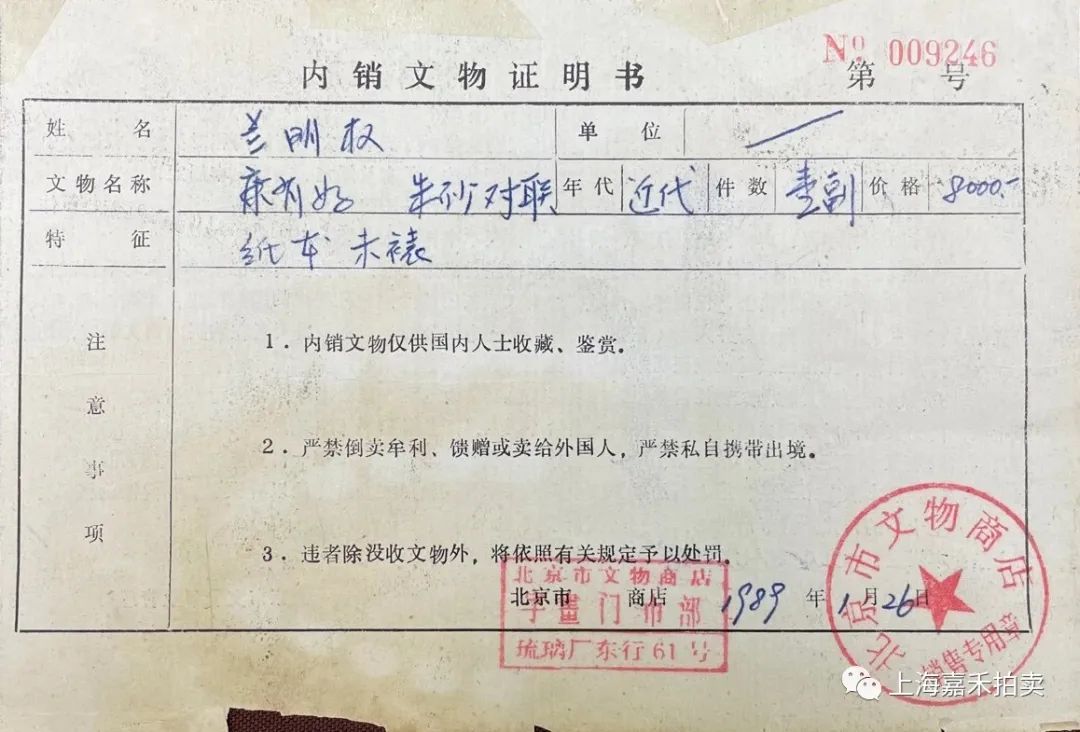 No 009246
内销文物证明书 第 号
姓名 兰明权 单位 /
文物名称 康有为 朱砂对联 年代 近代 件数 壹副 价格 8000.-
特征 纸本 未裱
注意事项
1.内销文物仅供国内人士收藏、鉴赏。
2.严禁倒卖牟利、馈赠或卖给外国人，严禁私自携带出境。
3.违者除没收文物外，将依照有关规定予以处罚。
北京市 商店 1989年1月26日
北京市文物商店
字畫门市部
琉璃厂东行61号
北京市文物商店
销售专用章
上海嘉禾拍卖